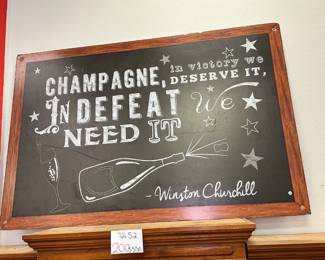 CHAMPAGNE,
in victory we
DESERVE IT,
IN DEFEAT
We
NEED IT
- Winston Churchill